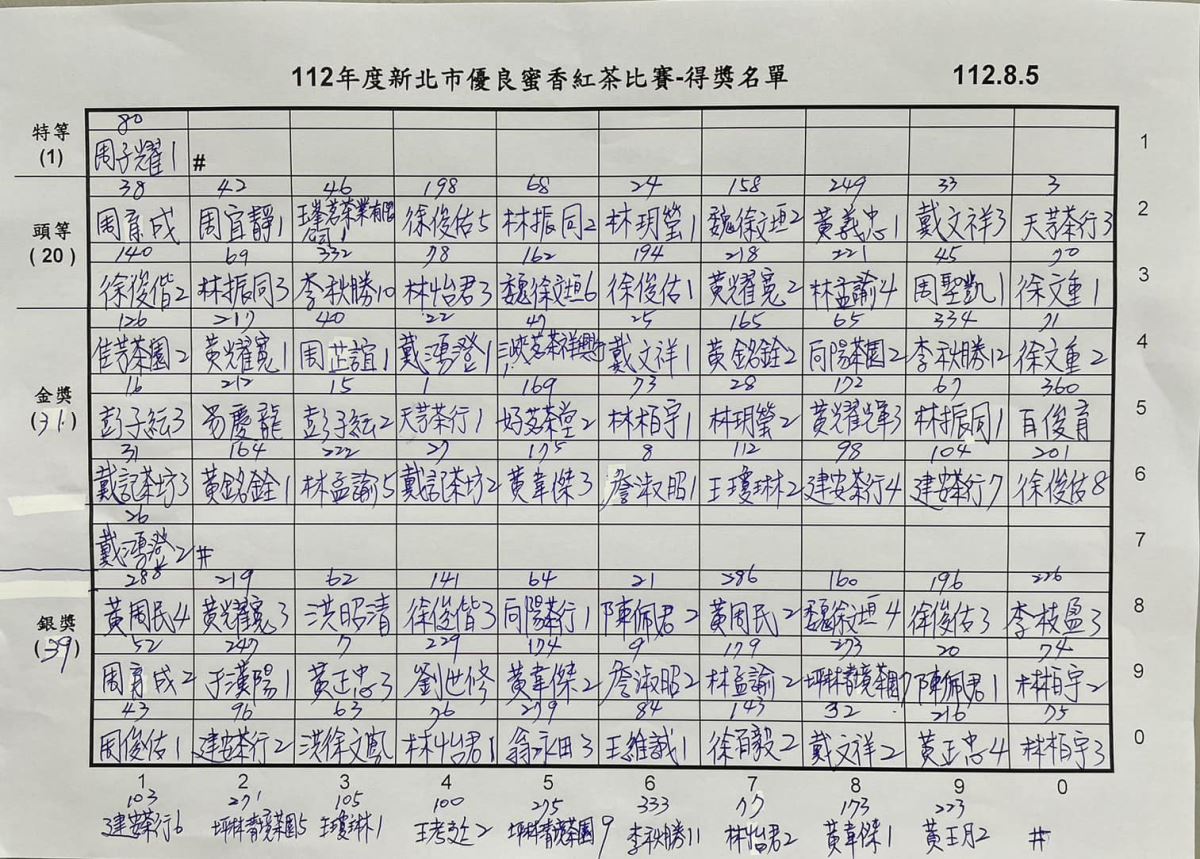 112年度新北市優良蜜香紅茶比賽-得獎名單 112.8.5
80
特等 1
(1) 周子耀1 #
38 42 46 198 68 24 158 249 33 3
頭等 周育成 周宜靜1 王峯茗茶業有限公司1 徐俊估5 林振同2 林玥瑩1 魏徐文垣2 黃義忠1 戴文祥3 天芳茶行3 2
(20) 140 69 332 78 162 194 218 221 45 70
徐俊偕2 林振同3 李秋勝10 林怡君3 魏徐文垣6 徐俊估1 黃耀寬2 林孟諭4 周聖凱1 徐文重1 3
126 217 40 22 47 25 165 65 334 71
佳芳茶園2 黃耀寬1 周芷誼1 戴鴻澄1 三峽茗茶祥興 戴文祥1 黃銘銓2 向陽茶園2 李秋勝12 徐文重2 4
金獎 16 212 15 1 169 73 28 172 67 360
(31) 彭子紜3 易慶龍 彭子紜2 天芳茶行1 好茶堂2 林柏宇1 林玥瑩2 黃耀輝3 林振同1 俊育 5
31 164 222 27 175 8 112 98 104 201
戴記茶坊3 黃銘銓1 林孟諭5 戴記茶坊2 黃韋傑3 詹淑昭1 王瓊琳2 建安茶行4 建安茶行7 徐俊估8 6
26
戴鴻澄2 # 7
288 219 62 141 64 21 286 160 196 226
銀獎 黃周民4 黃耀寬3 洪昭清 徐俊偕3 向陽茶行1 陳佩君2 黃周民2 魏徐文垣4 徐俊估3 李枝盈3 8
(39) 52 247 7 229 174 9 179 273 20 74
周育成2 于漢陽1 黃正忠3 劉世修 黃韋傑2 詹淑昭2 林孟諭2 坪林青境茶園7 陳佩君1 林柏宇2 9
43 96 63 76 279 84 143 32 216 75
周俊估1 建安茶行2 洪徐文鳳 林怡君1 翁永田3 王維誠1 徐百毅2 戴文祥2 黃正忠4 林柏宇3 0
1 2 3 4 5 6 7 8 9 0
103 271 105 100 275 333 77 173 223
建安茶行6 坪林青境茶園5 王瓊琳1 王考文2 坪林青境茶園9 李秋勝11 林怡君2 黃韋傑1 黃王月2 #